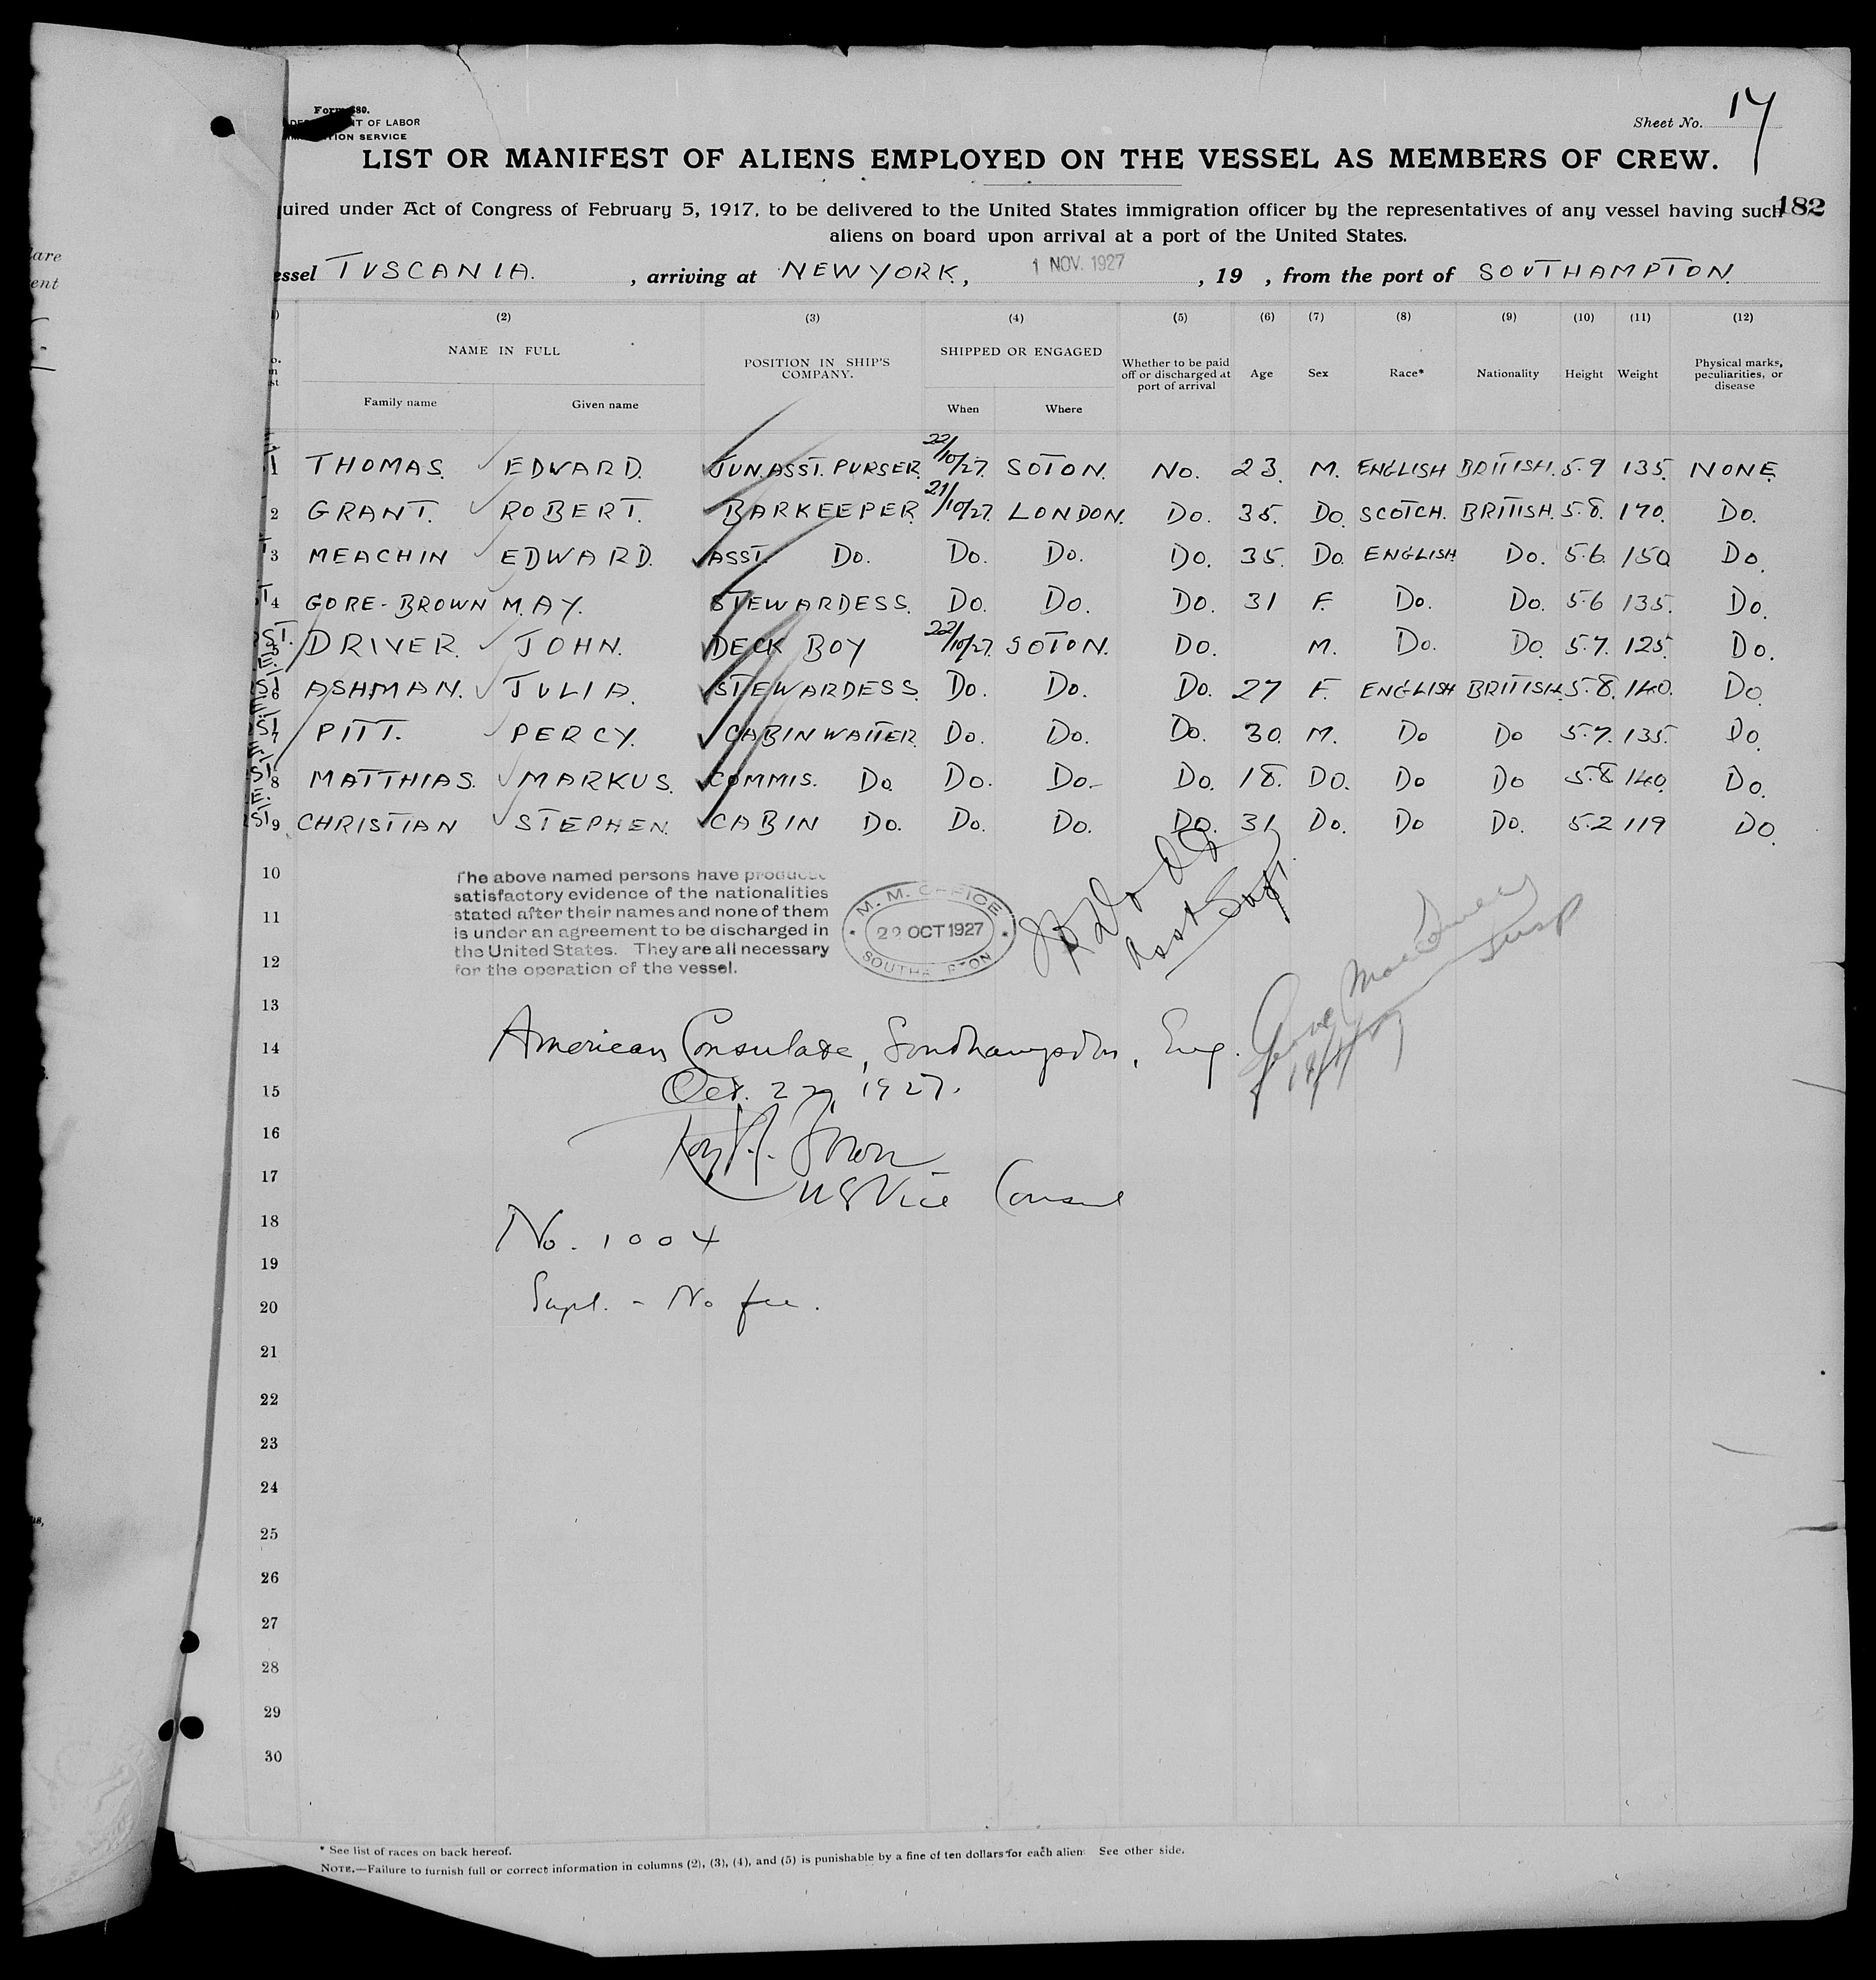 lare
ent
Form 680.
DEPARTMENT OF LABOR
IMMIGRATION SERVICE
Sheet No. 17
LIST OR MANIFEST OF ALIENS EMPLOYED ON THE VESSEL AS MEMBERS OF CREW.
182
uired under Act of Congress of February 5, 1917, to be delivered to the United States immigration officer by the representatives of any vessel having such
aliens on board upon arrival at a port of the United States.
essel TUSCANIA. , arriving at NEW YORK, 1 NOV. 1927 , 19 , from the port of SOUTHAMPTON.
(2) (3) (4) (5) (6) (7) (8) (9) (10) (11) (12)
NAME IN FULL POSITION IN SHIP'S COMPANY. SHIPPED OR ENGAGED Whether to be paid off or discharged at port of arrival Age Sex Race* Nationality Height Weight Physical marks, peculiarities, or disease
Family name Given name When Where
1 THOMAS. EDWARD. JUN. ASST. PURSER 22/10/27. SOTON. No. 23. M. ENGLISH BRITISH. 5.9 135. NONE.
2 GRANT. ROBERT. BARKEEPER 21/10/27. LONDON. Do. 35. Do. SCOTCH. BRITISH. 5.8. 170. Do.
3 MEACHIN EDWARD. ASST. Do. Do. Do. Do. 35. Do. ENGLISH Do. 5.6. 150. Do.
4 GORE-BROWN MAY. STEWARDESS. Do. Do. Do. 31 F. Do. Do. 5.6 135. Do.
5 DRIVER. JOHN. DECK BOY 22/10/27. SOTON. Do. M. Do. Do. 5.7. 125. Do.
6 ASHMAN. JULIA. STEWARDESS. Do. Do. Do. 27 F. ENGLISH BRITISH. 5.8. 140. Do.
7 PITT. PERCY. CABIN WAITER. Do. Do. Do. 30. M. Do Do 5.7. 135. Do.
8 MATTHIAS. MARKUS. COMMIS. Do. Do. Do. Do. 18. DO. Do Do 5.8 140. Do.
9 CHRISTIAN STEPHEN. CABIN Do. Do. Do. Do. 31 Do. Do Do. 5.2 119 Do.
10
The above named persons have produced
satisfactory evidence of the nationalities
stated after their names and none of them
is under an agreement to be discharged in
the United States. They are all necessary
for the operation of the vessel.
M. M. OFFICE
22 OCT 1927
SOUTHAMPTON
Asst Supt
11
12
13
14 American Consulate, Southampton, Eng.
15 Oct. 22, 1927.
16
17 US Vice Consul
18 No. 1004
19
20 Supl. - No fee.
21
22
23
24
25
26
27
28
29
30
* See list of races on back hereof.
NOTE.—Failure to furnish full or correct information in columns (2), (3), (4), and (5) is punishable by a fine of ten dollars for each alien. See other side.